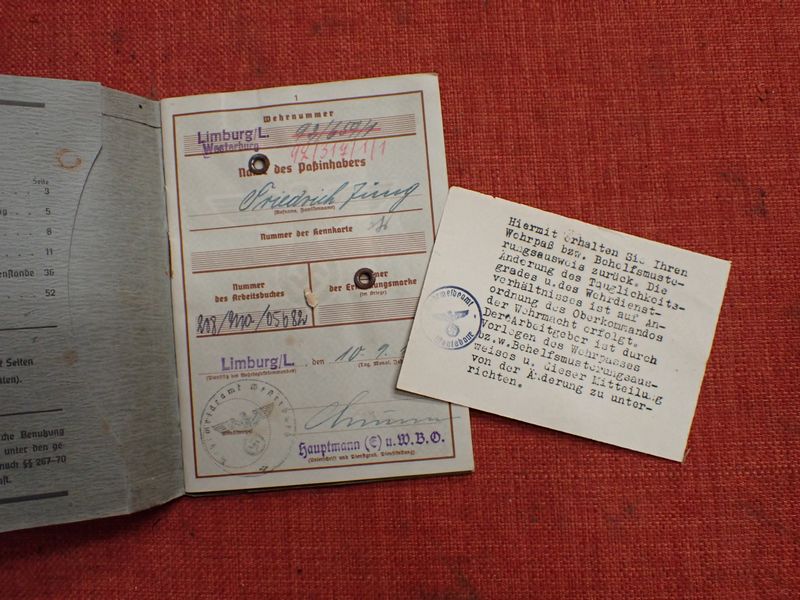 Seite
3
5
8
11
enstände 36
52
Seiten
ten).
che Benutzung
unter den ge-
nach §§ 267-70
1
Wehrnummer
Limburg/L.
Westerburg
92/317/1/1
Name des Paßinhabers
Friedrich Jung
(Rufname, Familienname)
Nummer der Kennkarte
Nummer
des Arbeitsbuches
der Erkennungsmarke
(im Kriege)
Limburg/L., den 10.9.
Hauptmann (E) u.W.B.O.
(Unterschrift und Dienstgrad, Dienststellung)
Hiermit erhalten Sie Ihren
Wehrpaß bzw. Behelfsmuste-
rungsausweis zurück. Die
Änderung des Tauglichkeits-
grades u.des Wehrdienst-
verhältnisses ist auf An-
ordnung des Oberkommandos
der Wehrmacht erfolgt.
Der Arbeitgeber ist durch
Vorlegen des Wehrpasses
bzw.Behelfsmusterungsaus-
weises u. dieser Mitteilung
von der Änderung zu unter-
richten.